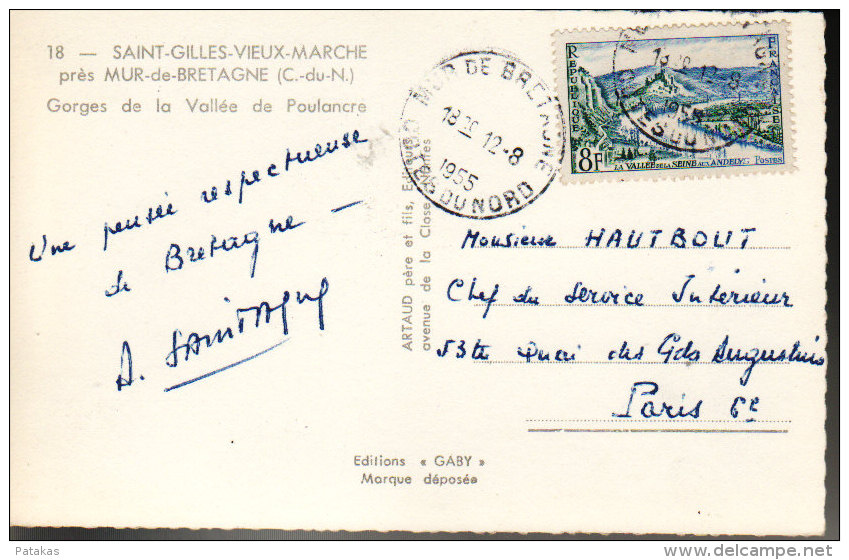 18 — SAINT-GILLES-VIEUX-MARCHE
près MUR-de-BRETAGNE (C.-du-N.)
Gorges de la Vallée de Poulancre
Une pensée respectueuse
de Bretagne —
A. SAINTAGNE
ARTAUD père et fils, Editeurs
avenue de la Close
MUR DE BRETAGNE
18 12-8
1955
CÔTES DU NORD
REPUBLIQUE FRANÇAISE
12-8
1955
8F
LA VALLEE DE LA SEINE AUX ANDELYS Postes
Monsieur HAUTBOUT
Chef du Service Intérieur
53 Quai des Gds Augustins
Paris 6e
Editions « GABY »
Marque déposée
Patakas
delcampe.net